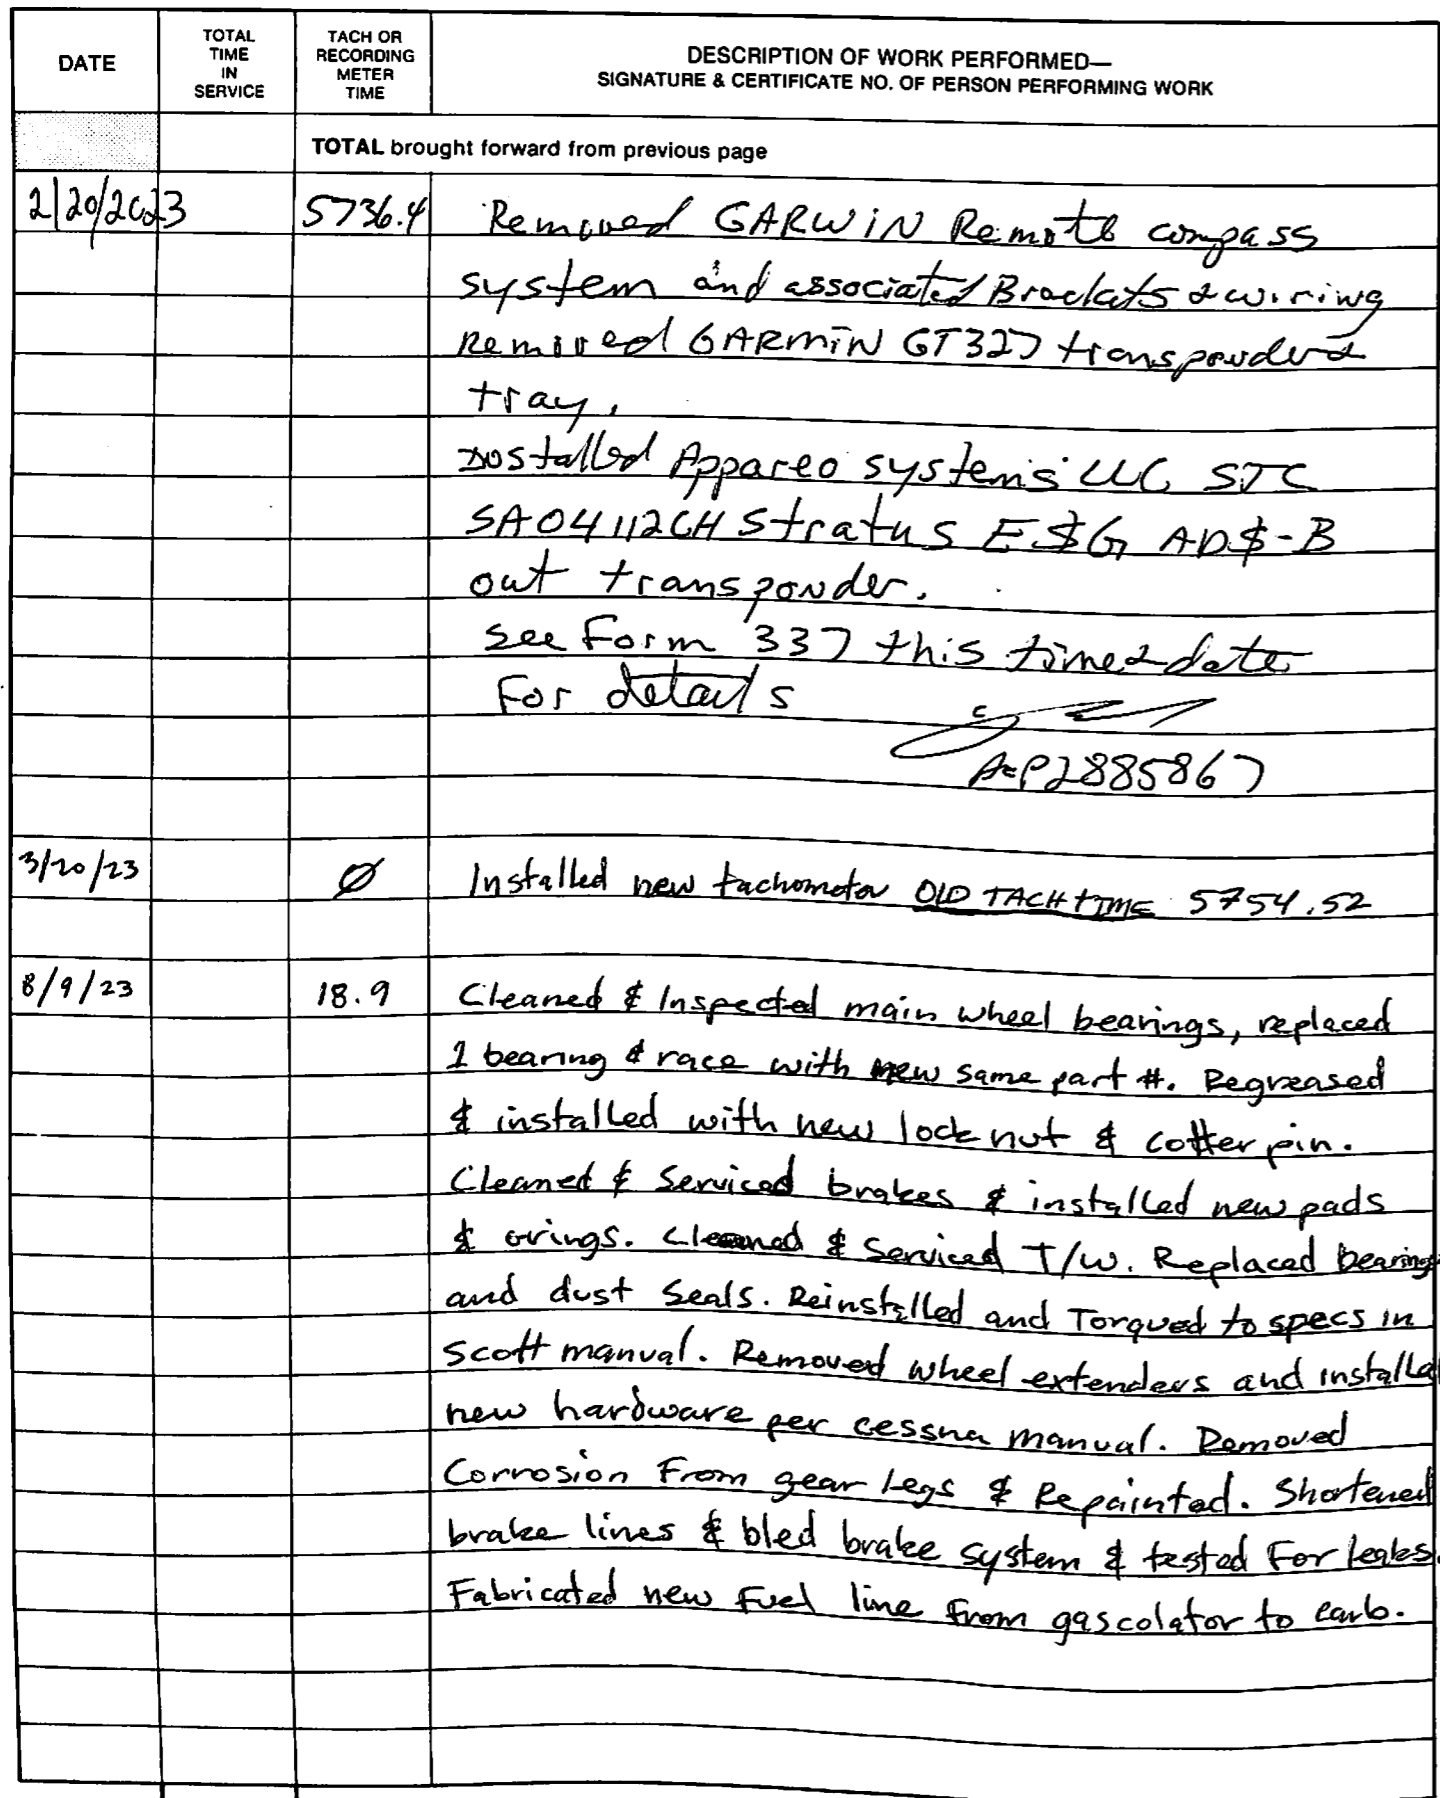 DATE
TOTAL
TIME
IN
SERVICE
TACH OR
RECORDING
METER
TIME
DESCRIPTION OF WORK PERFORMED—
SIGNATURE & CERTIFICATE NO. OF PERSON PERFORMING WORK
TOTAL brought forward from previous page
2/20/2023 5736.4 Removed GARWIN Remote compass
system and associated Brackets & wiring
Removed GARMIN GT327 transponder &
tray,
Installed Appareo systems LLC STC
SA04112CH Stratus ESG ADS-B
out transponder.
see Form 337 this time & date
For details
A&P2885867
3/20/23 Ø Installed new tachometer OLD TACH TIME 5754.52
8/9/23 18.9 Cleaned & Inspected main wheel bearings, replaced
1 bearing & race with new same part #. Regreased
& installed with new lock nut & cotter pin.
Cleaned & Serviced brakes & installed new pads
& orings. Cleaned & Serviced T/W. Replaced bearings
and dust seals. Reinstalled and Torqued to specs in
Scott manual. Removed wheel extenders and installed
new hardware per cessna manual. Removed
Corrosion From gear legs & Repainted. Shortened
brake lines & bled brake system & tested For leaks.
Fabricated new Fuel line from gascolator to carb.